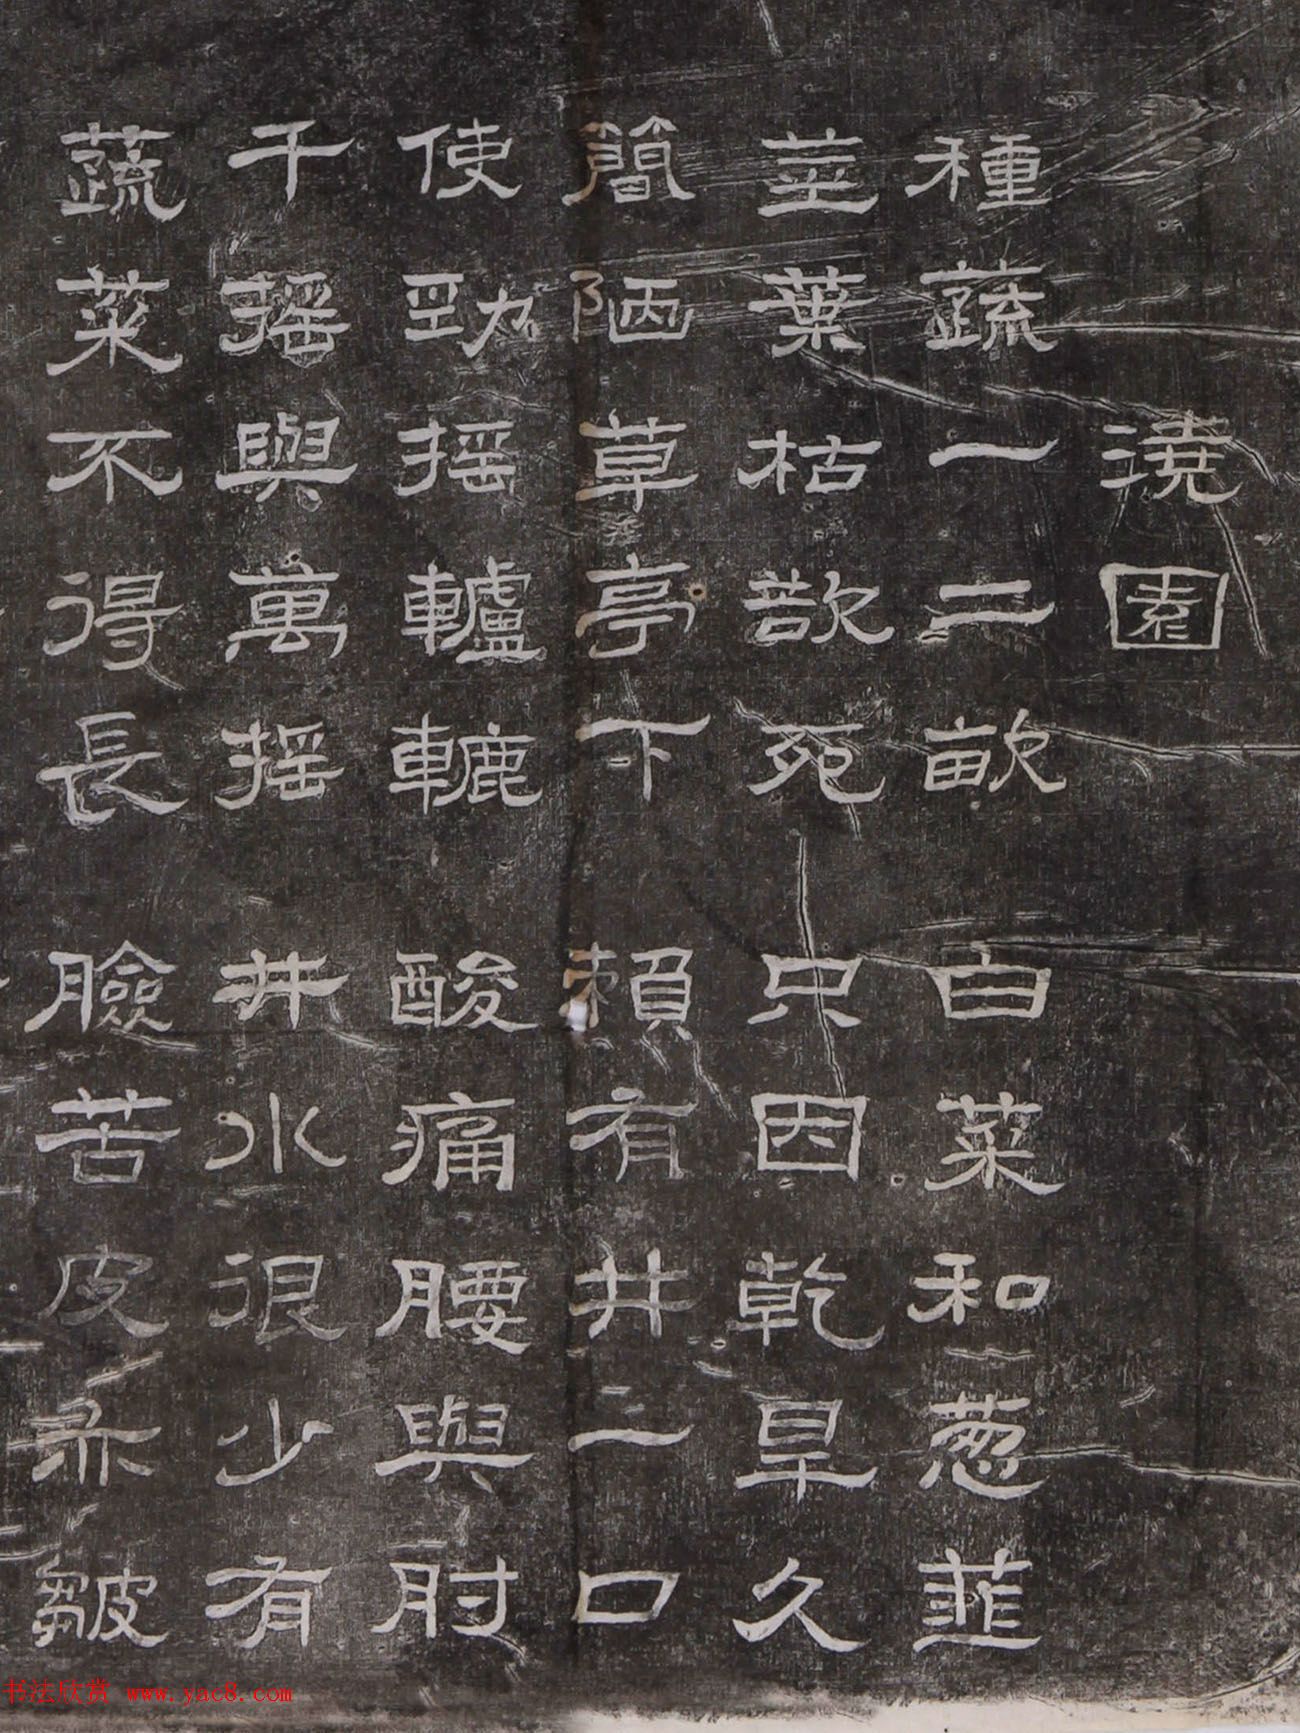 澆園
種蔬一二畝 白菜和葱韮
莖葉枯歆死 只因乾旱久
簡陋草亭下 賴有井一口
使勁搖轤轆 酸痛腰與肘
千搖與萬搖 井水很少有
蔬菜不得長 臉苦皮亦皺
书法欣赏 www.yac8.com